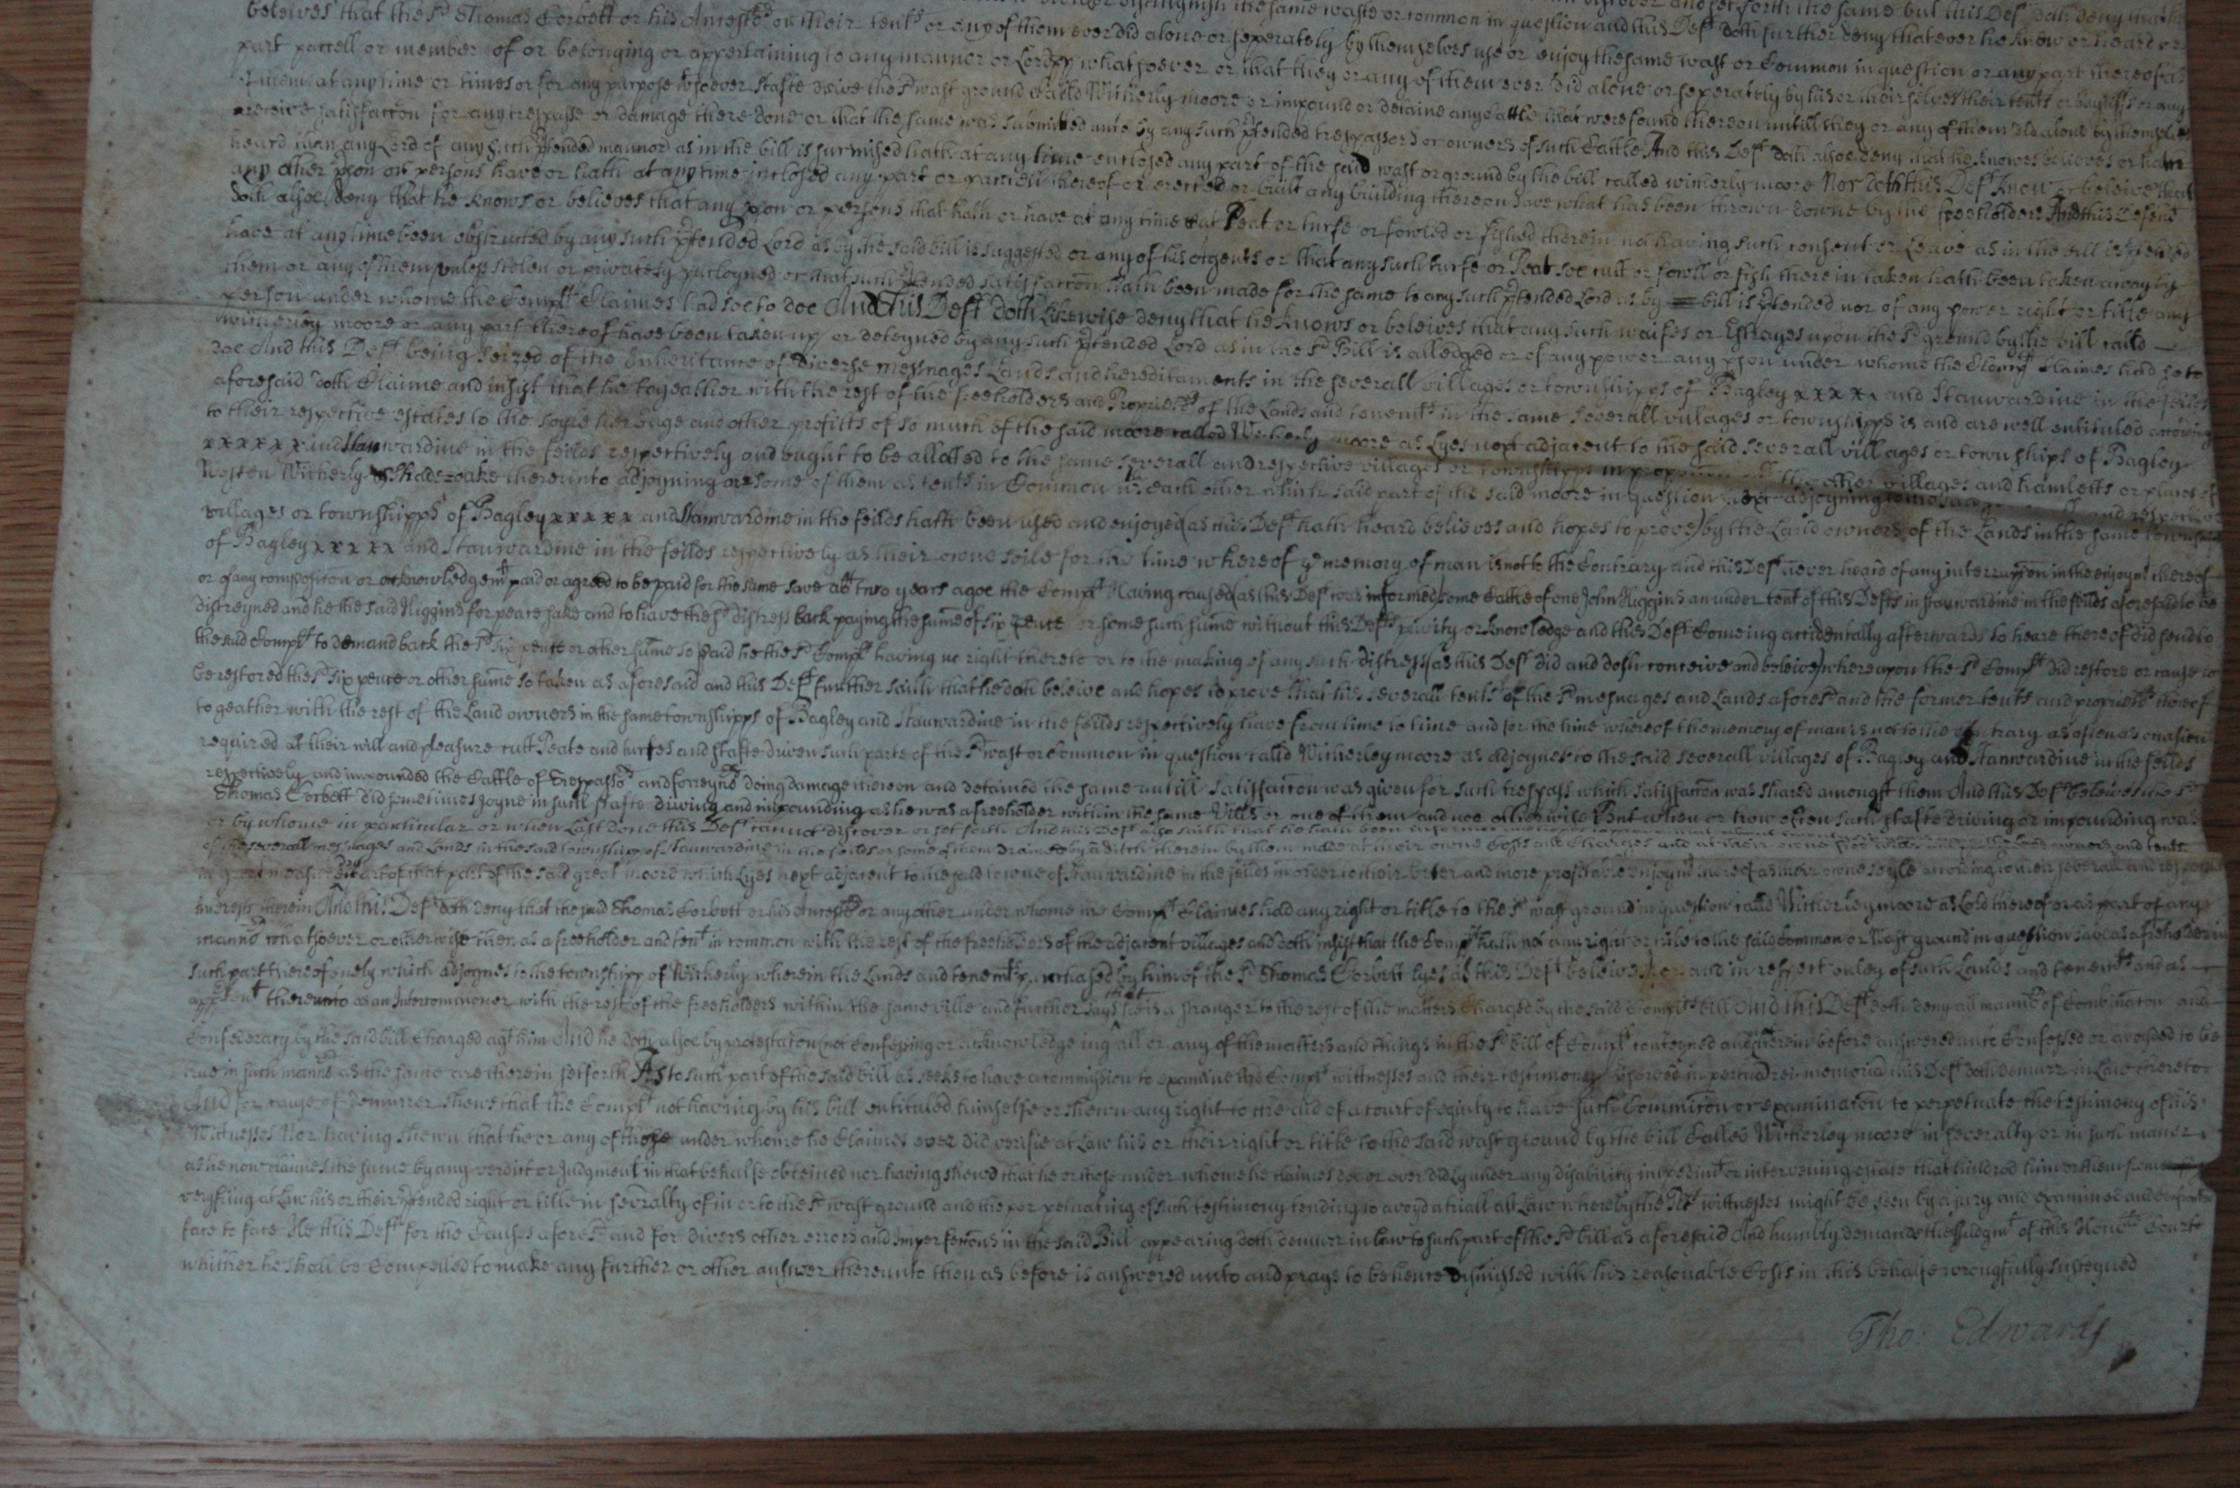 beleives that the sd Thomas Corbett or his Ancestrs or their tents or any of them ever did alone or seperately by themselves use or enjoy the same wast or Common in question or any part thereof as
part parcell or member of or belonging or appertaining to any mannor or Lordspp whatsoever or that they or any of them ever did alone or seperately by his or their selves their tents or
at any time or times or for any purpose whsoever staffe drive the sd wast ground called Witherly moore or impound or detaine any cattle that were found thereon untill they or any of them did alone by themselves
receive satisfaccon for any trespasse or damage there done or that the same was submitted unto by any such prtended trespassers or owners of such Cattle And this Deft doth alsoe deny that he knowes beleives or hath
heard that any Lord of any such prtended mannor as in the bill is surmised hath at any time enclosed any part of the said wast or ground by the bill called witherly moore Nor doth this Deft know or beleive that
any other pson or persons have or hath at any time inclosed any part or parcell thereof or erected or built any building thereon save what has been thrown downe by the freeholders And this Defend
doth alsoe deny that he knows or believes that any pson or persons that hath or have at any time cut Peat or turfe or fowled or fished therein not having such consent or Leave as in the bill is prtended
have at any time been obstructed by any such prtended Lord as by the said bill is suggested or any of his Agents or that any such turfe or Peat soe cutt or fowll or fish there in taken hath been taken away by
them or any of them unlesse stolen or privately purloyned or that such prtended satisfaccon hath been made for the same to any such prtended Lord as by bill is prtended nor of any power right or title any
person under whome the Complt Claimes had soe to doe And this Deft doth likewise deny that he knows or beleives that any such waifes or Estrayes upon the sd ground by the bill calld
witherley moore or any part thereof have been taken up or deteyned by any such prtended Lord as in the sd Bill is alledged or of any power any pson under whome the Complt Claimes had so to
doe And this Deft being seized of the Inheritance of diverse messuages Lands and hereditaments in the severall villages or townshipps of Bagley xxxxx and Stanwardine in the feilds
aforesaid doth Claime and insist that he togeather with the rest of the freeholders and Proprietrs of the Lands and tenemts in the same severall villages or townshipps is and are well entituled according
to their respective estates to the soyle herbage and other profitts of so much of the said moore called Witherly moore as Lyes next adjacent to the said severall villages or townshipps of Bagley
xxxxxx and Stanwardine in the feilds respectively and ought to be allotted to the same severall and respective villages or townshipps in proporcon the other villages and hamletts or places of
Weston Witherly & Shadeoake thereunto adjoyning or some of them as tents in Common wth each other which said part of the said moore in question next adjoyning
villages or townshipps of Bagley xxxxx and Stanwardine in the feilds hath been used and enjoyed (as this Deft hath heard believes and hopes to prove) by the Land owners of the Lands in the same townshipps
of Bagley xxxxx and Stanwardine in the feilds respectively as their owne soile for the time whereof ye memory of man is not to the Contrary and this Deft never heard of any interrupcon in the enjoymt thereof
or of any composicon or acknowledgemt paid or agreed to be paid for the same save abt two years agoe the Complt Having caused (as this Deft was informed) some Cattle of one John Higgins an under tent of this Defts in Stanwardine in the feilds aforesaid to be
distreyned and he the said Higgins for peace sake and to have the sd distress back paying the sume of six pence or some such sume without this Defts privity or knowledge and this Deft comeing accidentally afterwards to heare thereof did send to
the said Complt to demand back the sd six pence or other sume so paid he the sd Complt having no right thereto or to the making of any such distress (as this Deft did and doth conceive and beleive) whereupon the sd Complt did restore or cause to
be restored the sd six pence or other sume so taken as aforesaid and this Deft further saith that he doth beleive and hopes to prove that his severall tents of the sd messuages and Lands aforesd and the former tents and proprietrs thereof
togeather with the rest of the Land owners in the same townshipps of Bagley and Stanwardine in the feilds respectively have from time to time and for the time whereof the memory of man is not to the contrary as often as occasion
required at their will and pleasure cutt Peate and turfes and staffe driven such parte of the sd wast or Common in question calld Witherley moore as adjoynes to the said severall villages of Bagley and Stanwardine in the feilds
respectively and impounded the Cattle of Trespassrs and forreyners doing damage thereon and detained the same untill satisfaccon was given for such trespass which satisfaccon was shared amongst them And this Deft beleives the sd
Thomas Corbett did sometimes joyne in such staffe driving and impounding as he was a freeholder within the same Vills or one of them and noe otherwise But when or how often such staffe driving or impounding was
or by whome in particular or when Last done this Deft cannot discover or set forth And this Deft also saith that he hath been informed
of the severall messuages and Lands in the said townshipp of Stanwardine in the feilds or some of them drained by a ditch therein by them made at their owne Costs and Charges and at their owne
part of that part of the said great moore which Lyes next adjacent to the said towne of Stanwardine in the feilds in order to their better and more profitable enjoymt thereof as their owne soyle according to their severall and respective
interests therein And this Deft doth deny that the said Thomas Corbett or his Ancestrs or any other under whome the Complt Claimes had any right or title to the sd wast ground in question calld Witherley moore as Lord thereof or as part of any
mannor whatsoever or otherwise then as a freeholder and tent in common with the rest of the freeholders of the adjacent villages and doth insist that the Complt hath not any right or title to the said Common or Wast ground in question save as a freeholder in
such part thereof onely which adjoynes to the townshipp of Witherly wherein the Lands and tenemts purchased by him of the sd Thomas Corbett lyes as this Deft beleives and in respect onley of such Lands and tenemts and as
appurtent thereunto as an Intercommoner with the rest of the freeholders within the same ville and further says that he is a stranger to the rest of the matters Charged by the said Complts bill And this Deft doth deny all manner of Combinacon and
Confederacy by the said bill Charged agt him And he doth alsoe by protestacon (not Confessing or Acknowledgeing all or any of the matters and things in the sd bill of Complt conteyned and herein before answered unto Confessed or avoyded to be
true in such manner as the same are therein setforth As to such part of the said bill as seeks to have a commission to examine the Complts wittnesses and their testimony preserved in perpetuam rei memoriam this Deft doth demurr in Law thereto
And for cause of demurrer shews that the Complt not having by his bill entituled himselfe or shewn any right to the aid of a court of equity to have such Commicon or examinacon to perpetuate the testimony of his
Wittnesses Nor having shewn that he or any of those under whome he Claimes ever did verifie at Law his or their right or title to the said wast ground by the bill Called Witherley moore in severalty or in such maner
as he now claimes the same by any verdict or Judgment in that behalfe obteined nor having shewd that he or those under whome he claimes doe or ever did Ly under any disability impedimt or intervening estate that hindred him or them from
verifiing at Law his or their prtended right or title in severalty of in or to the sd wast ground and the perpetuating of such testimony tending to avoyd a triall att Law whereby the sd wittnesses might be seen by a jury and examined and confronted
face to face He this Deft for the Causes aforesd and for divers other errors and Imperfeccons in the said Bill appearing doth demurr in law to such part of the sd bill as aforesaid And humbly demands the Judgmt of this Honble Court
whither he shall be Compelled to make any further or other answer thereunto then as before is answered unto and prays to be hence dismissed with his reasonable Costs in this behalfe wrongfully susteyned
Tho: Edwards